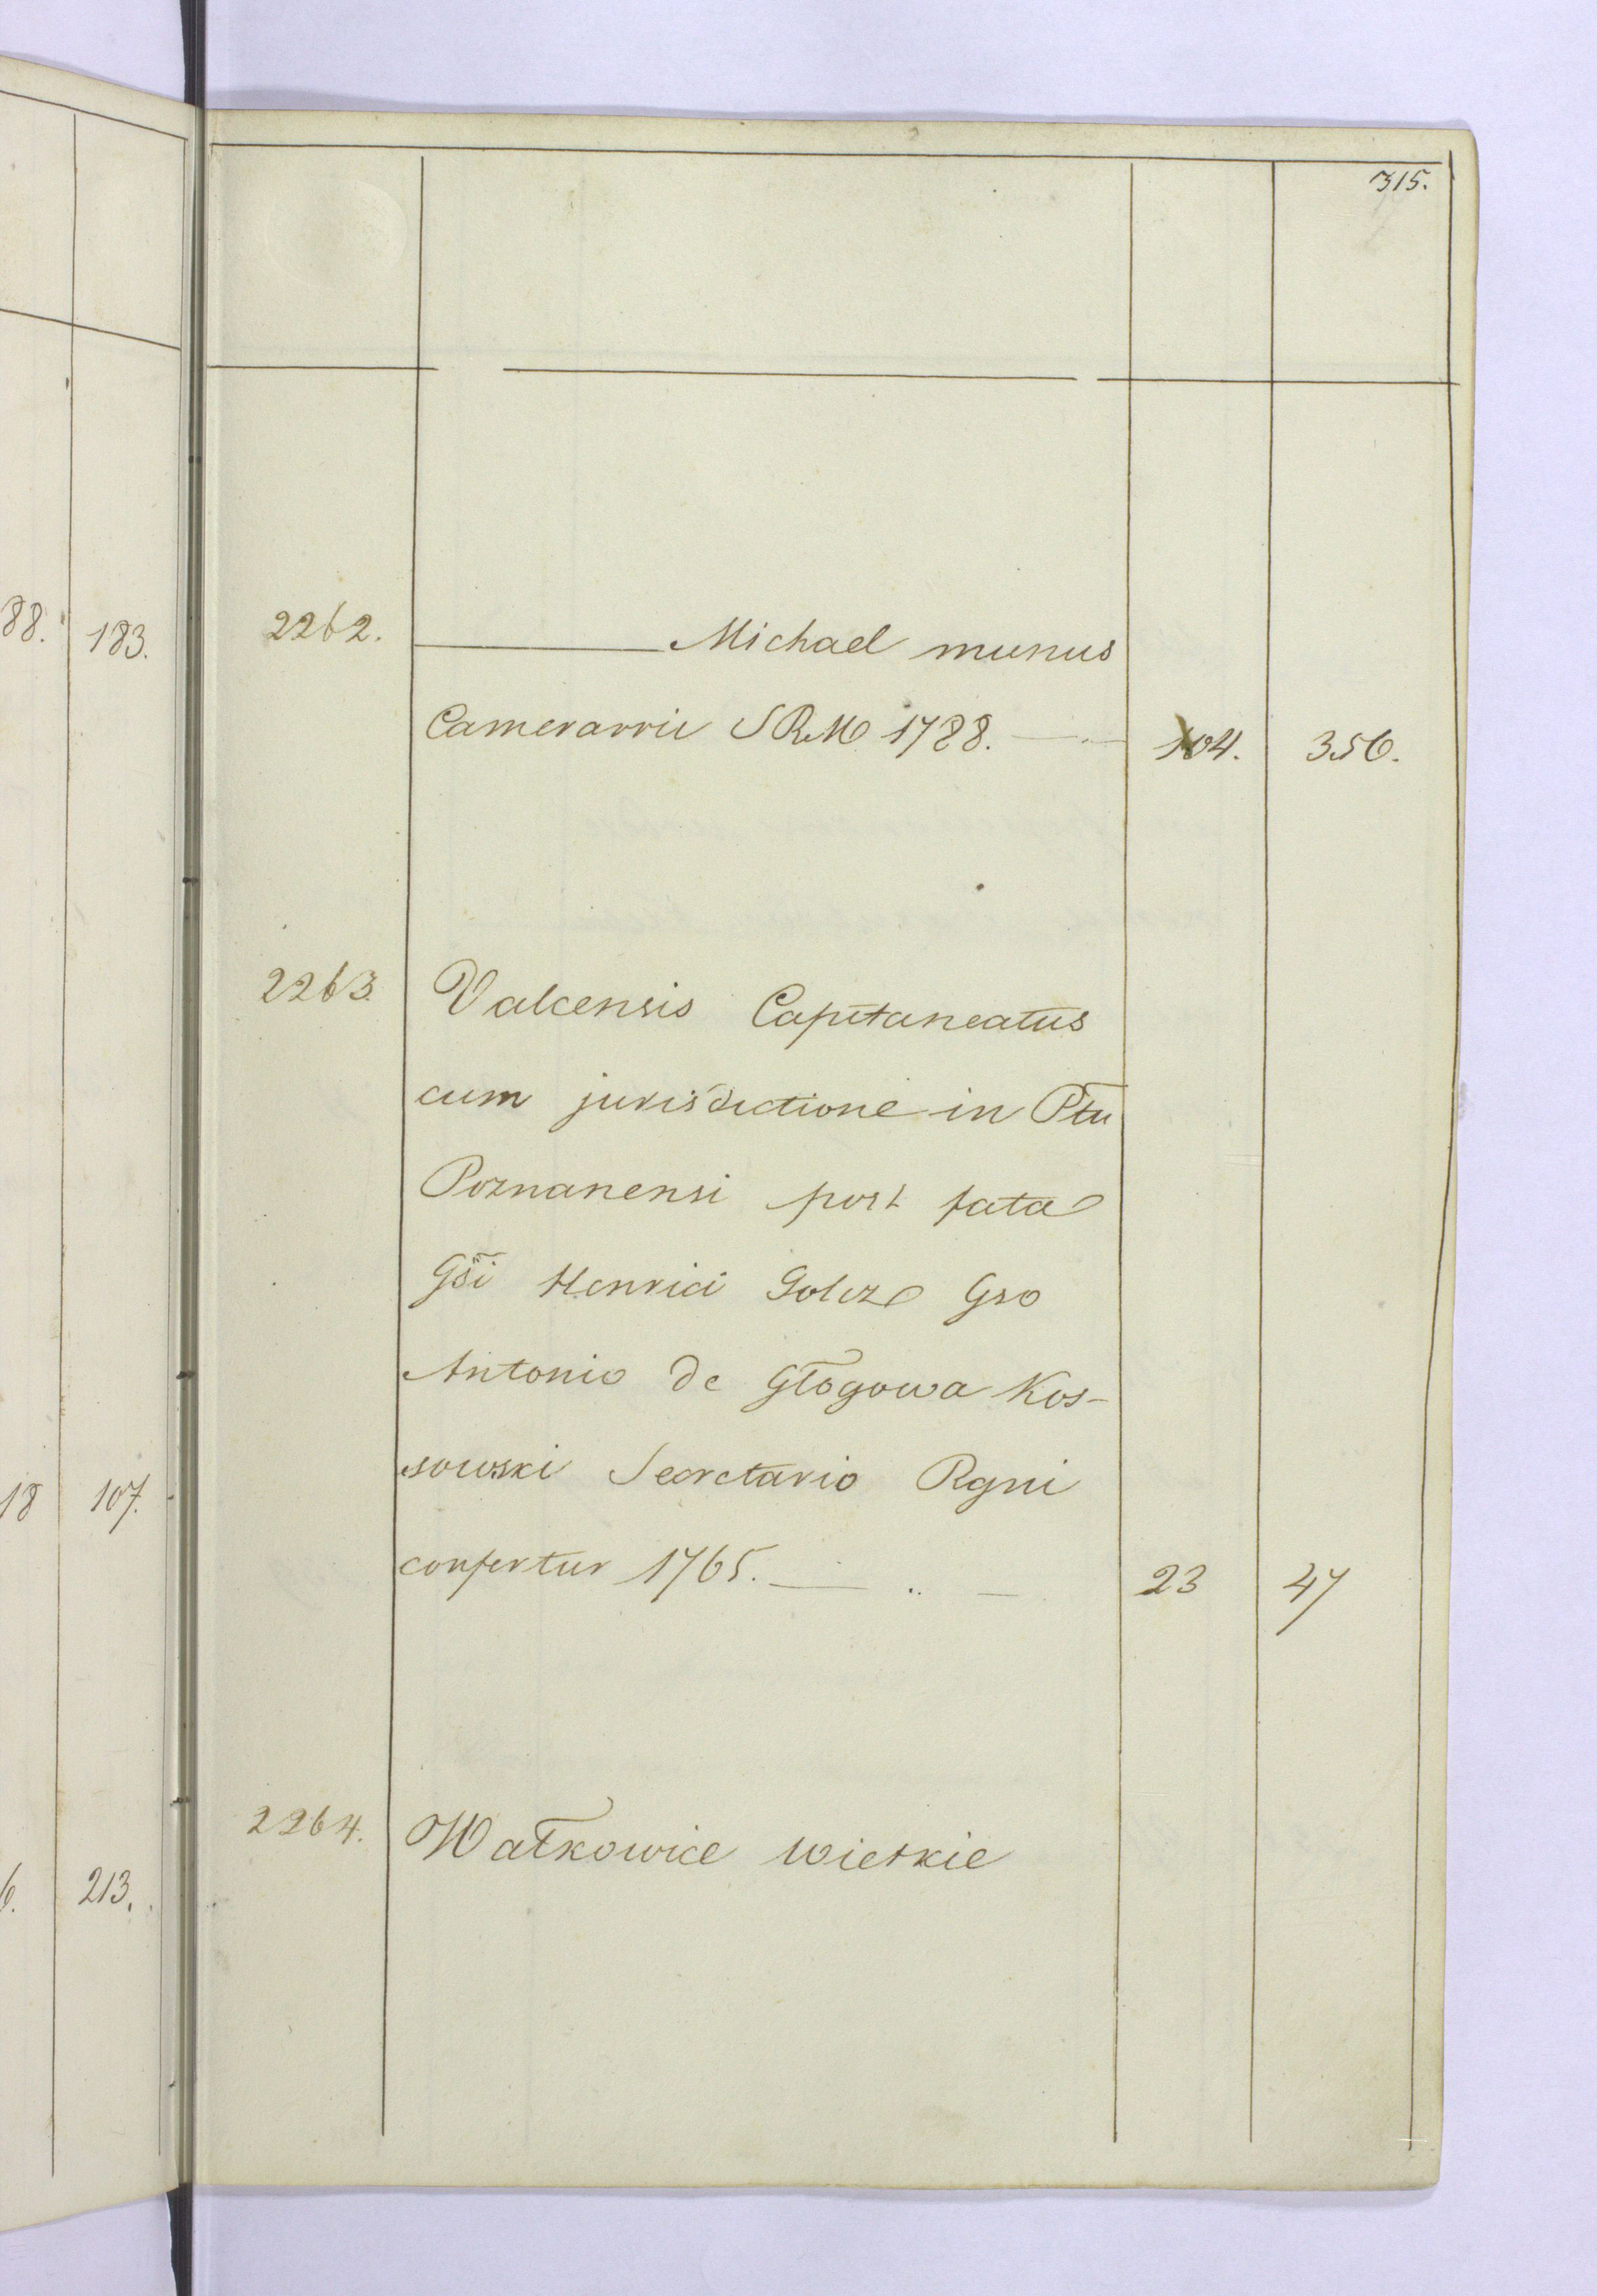 315.
88. 183.
2262. ——— Michael munus
Camerarii SRM 1788. — 104. 356.
2263. Valcensis Capitaneatus
cum jurisdictione in Ptu
Poznanensi post fata
Gsi Henrici Golcz Gso
Antonio de Głogowa Kos-
sowski Secretario Rgni
18 107.
confertur 1765. — .. — 23 47
2264. Wałkowice wielkie
6. 213.